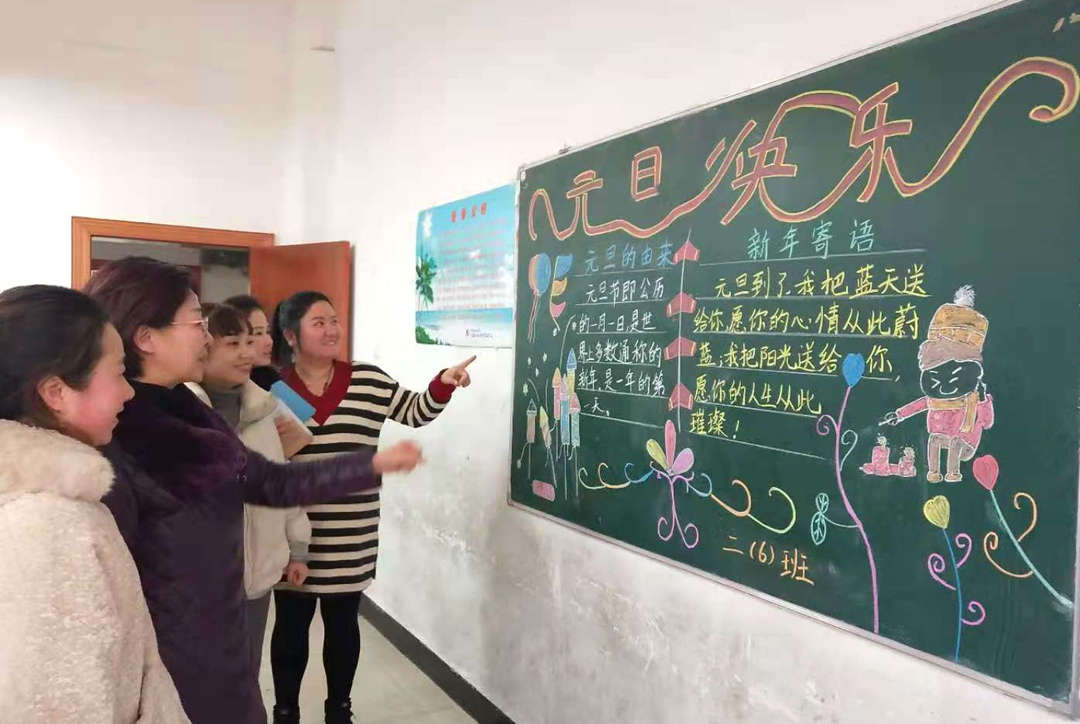 元旦快乐
元旦的由来
元旦节即公历
的一月一日,是世
界上多数通称的
新年,是一年的第
一天。
新年寄语
元旦到了,我把蓝天送
给你,愿你的心情从此蔚
蓝;我把阳光送给你,
愿你的人生从此
璀璨!
二(6)班